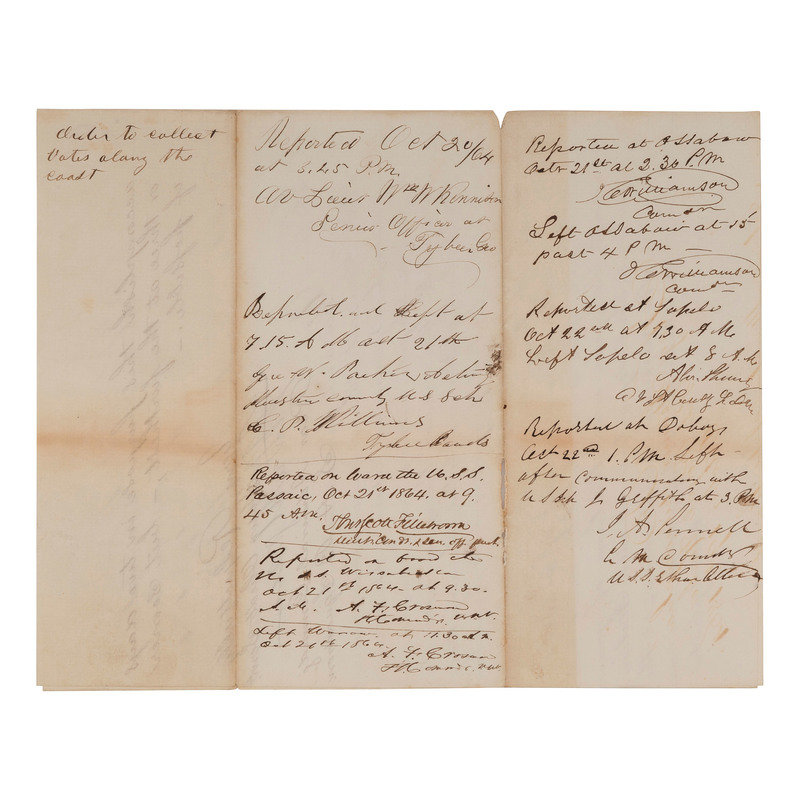 Order to collect
Votes along the
coast
Reported Oct 20/64
at 5.45 P.M.
Lieut Wm W Kennison
Senior Officer at
Tybee Geo
Reported and Left at
7.15. A M oct 21th
Geo W. Parker Acting
U S Sch
C. P. Williams
Tybee Roads
Reported on board the U.S.S.
Passaic, Oct 21st 1864. at 9.
45 A.M. Fillebrown
Reported on board the
U. S. S. Wissahickon
Oct 21st 1864 at 9.30.
A.M. A. F. Crosman
Lt Comdr
Left Warsaw at 11.30 a.m.
Oct 21st 1864
A. F. Crosman
Lt Com
Reported at Ossabaw
Octr 21st at 2.30 P.M
J C Williamson
Comdr
Left Ossabaw at 15
past 4 P M
J C Williamson
Comdr
Reported at Sapelo
Oct 22nd at 7.30 A.M.
Left Sapelo at 8 A.M
Reported at Doboy
Oct 22nd 1. P.M. Left
after Communicating with
U S Sch J Griffith at 3. P.M
J. A. Pennell
Comdg
U.S.S.